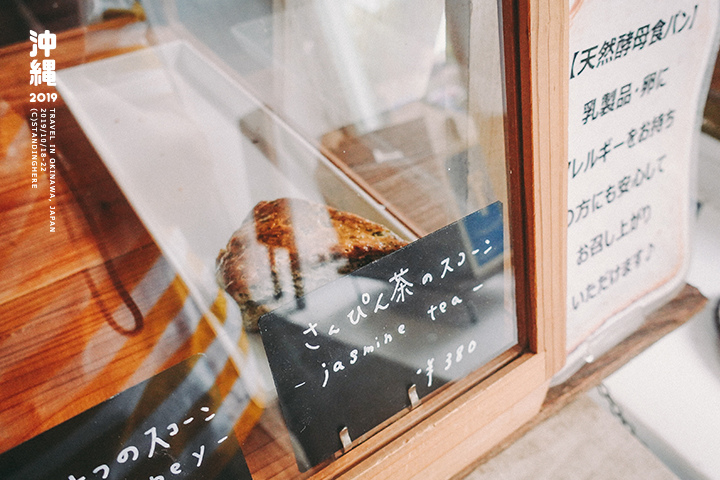 沖縄
2019
TRAVEL IN OKINAWA, JAPAN
2019/10/18-22
(C)STANDINGHERE
【天然酵母食パン】
乳製品・卵に
アレルギーをお持ち
の方にも安心して
お召し上がり
いただけます♪
さんぴん茶のスコーン
- jasmine tea -
¥380
つのスコーン
ey -